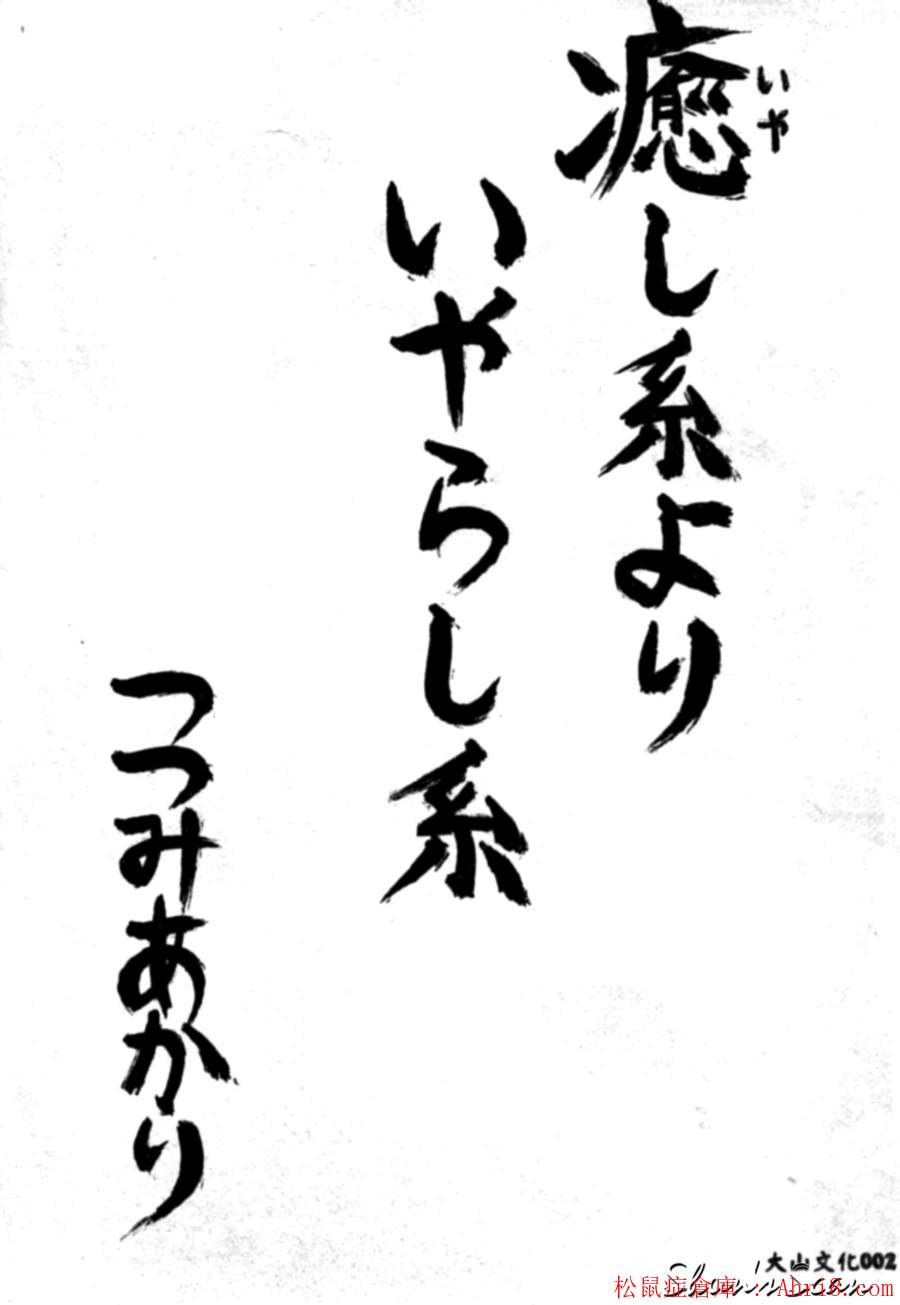 癒し系より
いや
いやらし系
つつみあかり
大山文化002
松鼠症倉庫 : Ahri8.com